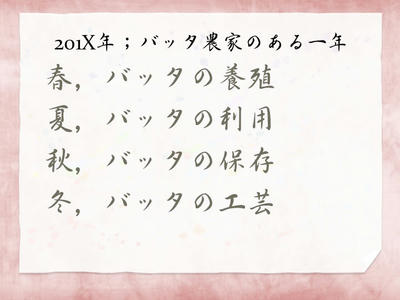 201X年；バッタ農家のある一年
春，バッタの養殖
夏，バッタの利用
秋，バッタの保存
冬，バッタの工芸